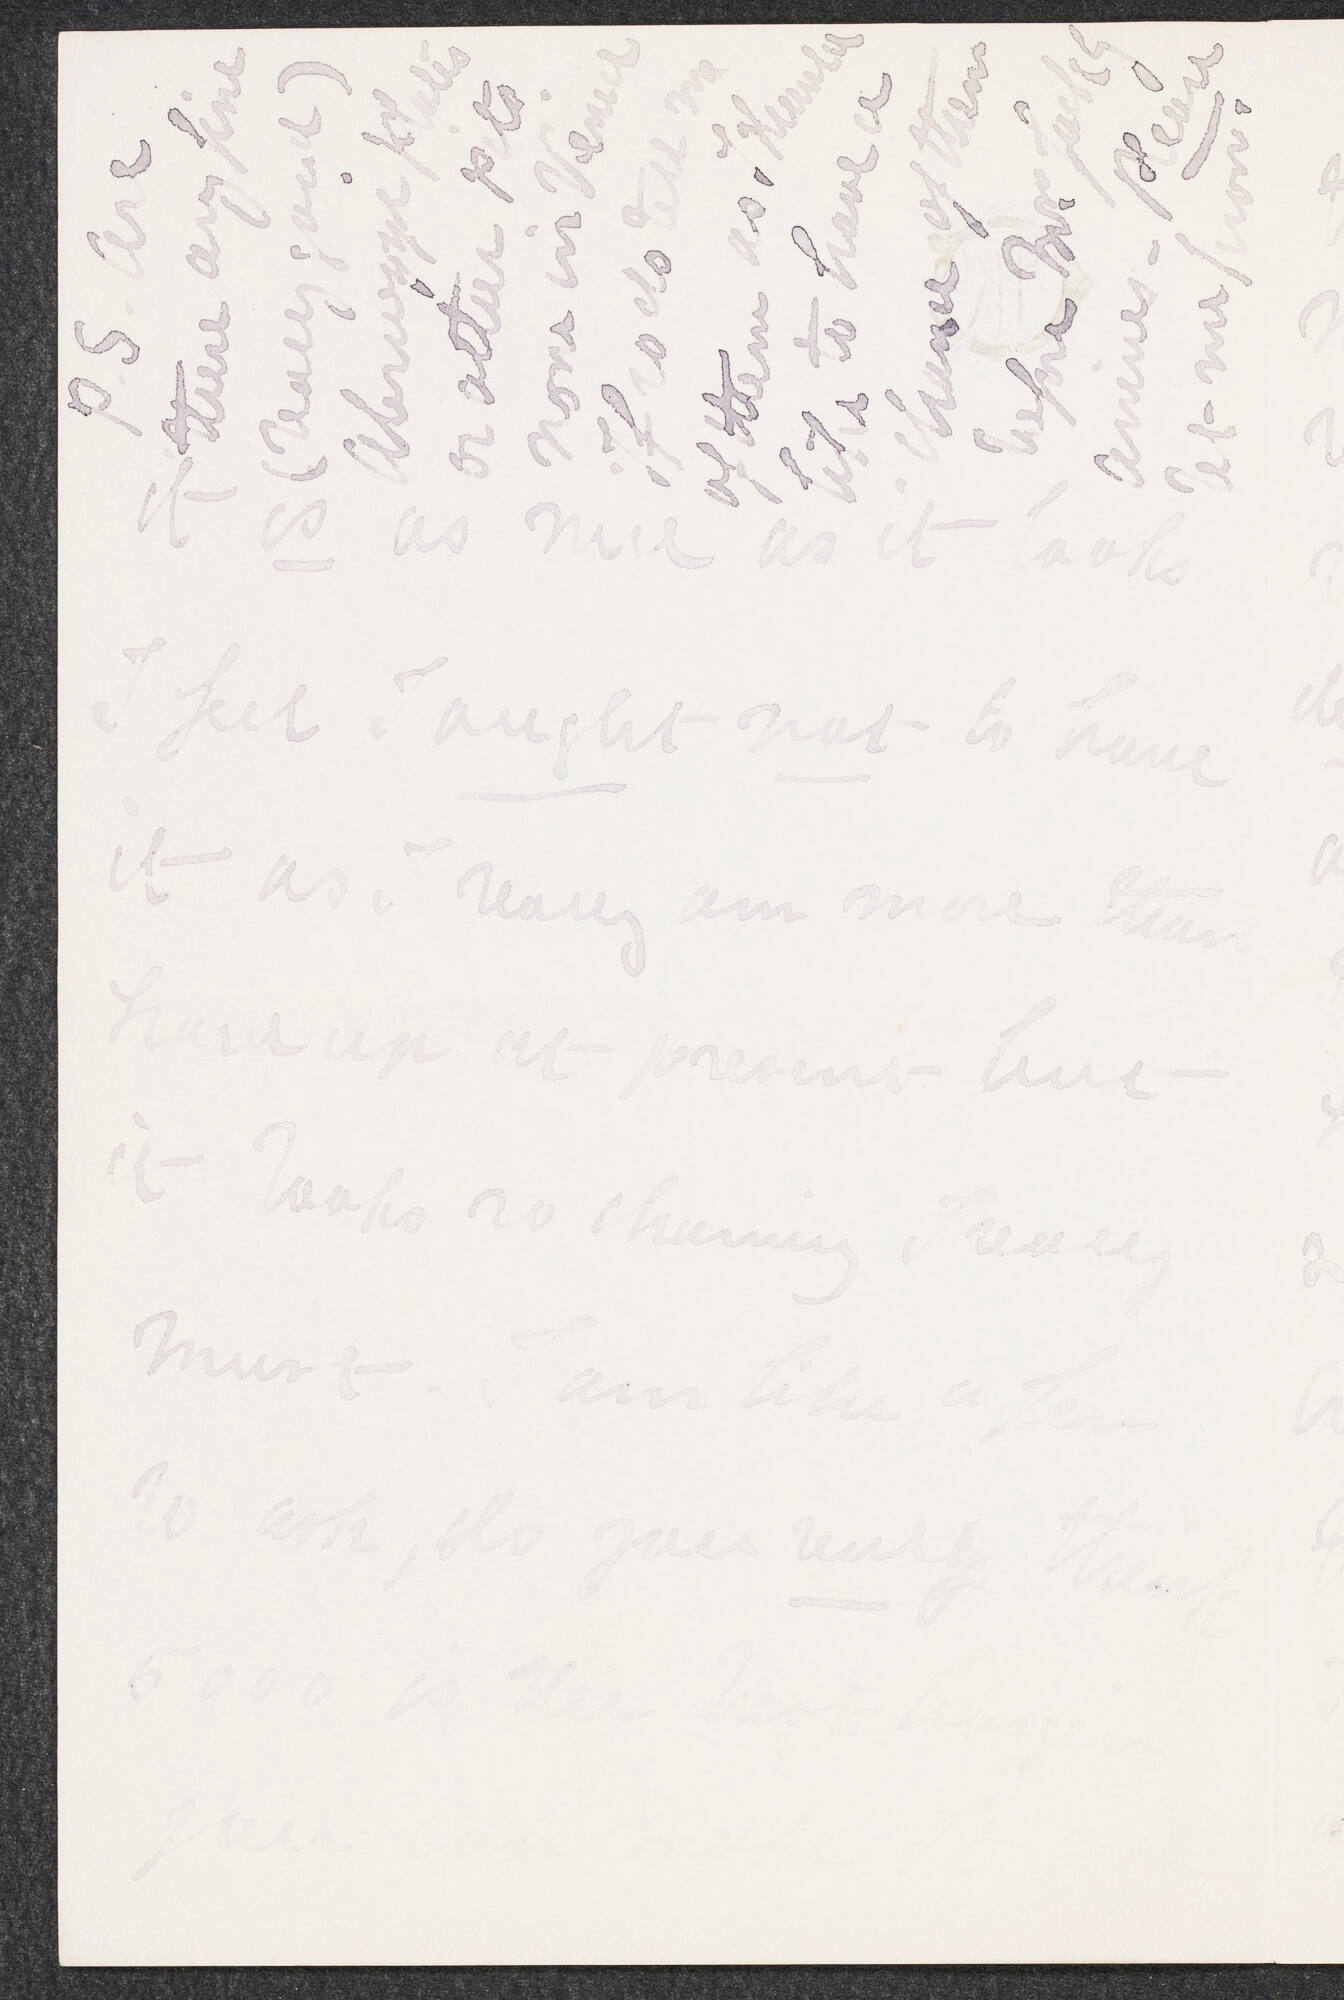 P.S. Are
there any fine
(really good)
Abruzzi plates
or other pots
now in Venice.
if so do tell me
of them as I should
like to have a
chance of them
before Mrs Jack
arrives - please
let me know.
it is as nice as it looks
I feel I ought not to have
it as I really am more than
hard up at present but
it looks so charming I really
must. I am like a Jew
to ask, do you really think
5000 is the best
you